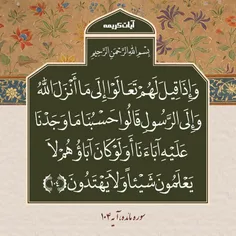 آیات کریمه
بِسْمِ اللَّهِ الرَّحْمَنِ الرَّحِيمِ
وَإِذَا قِيلَ لَهُمْ تَعَالَوْا إِلَىٰ مَا أَنْزَلَ اللَّهُ
وَإِلَى الرَّسُولِ قَالُوا حَسْبُنَا مَا وَجَدْنَا
عَلَيْهِ آبَاءَنَا أَوَلَوْ كَانَ آبَاؤُهُمْ لَا
يَعْلَمُونَ شَيْئًا وَلَا يَهْتَدُونَ ﴿١٠٤﴾
سوره مائده: آیه ۱۰۴